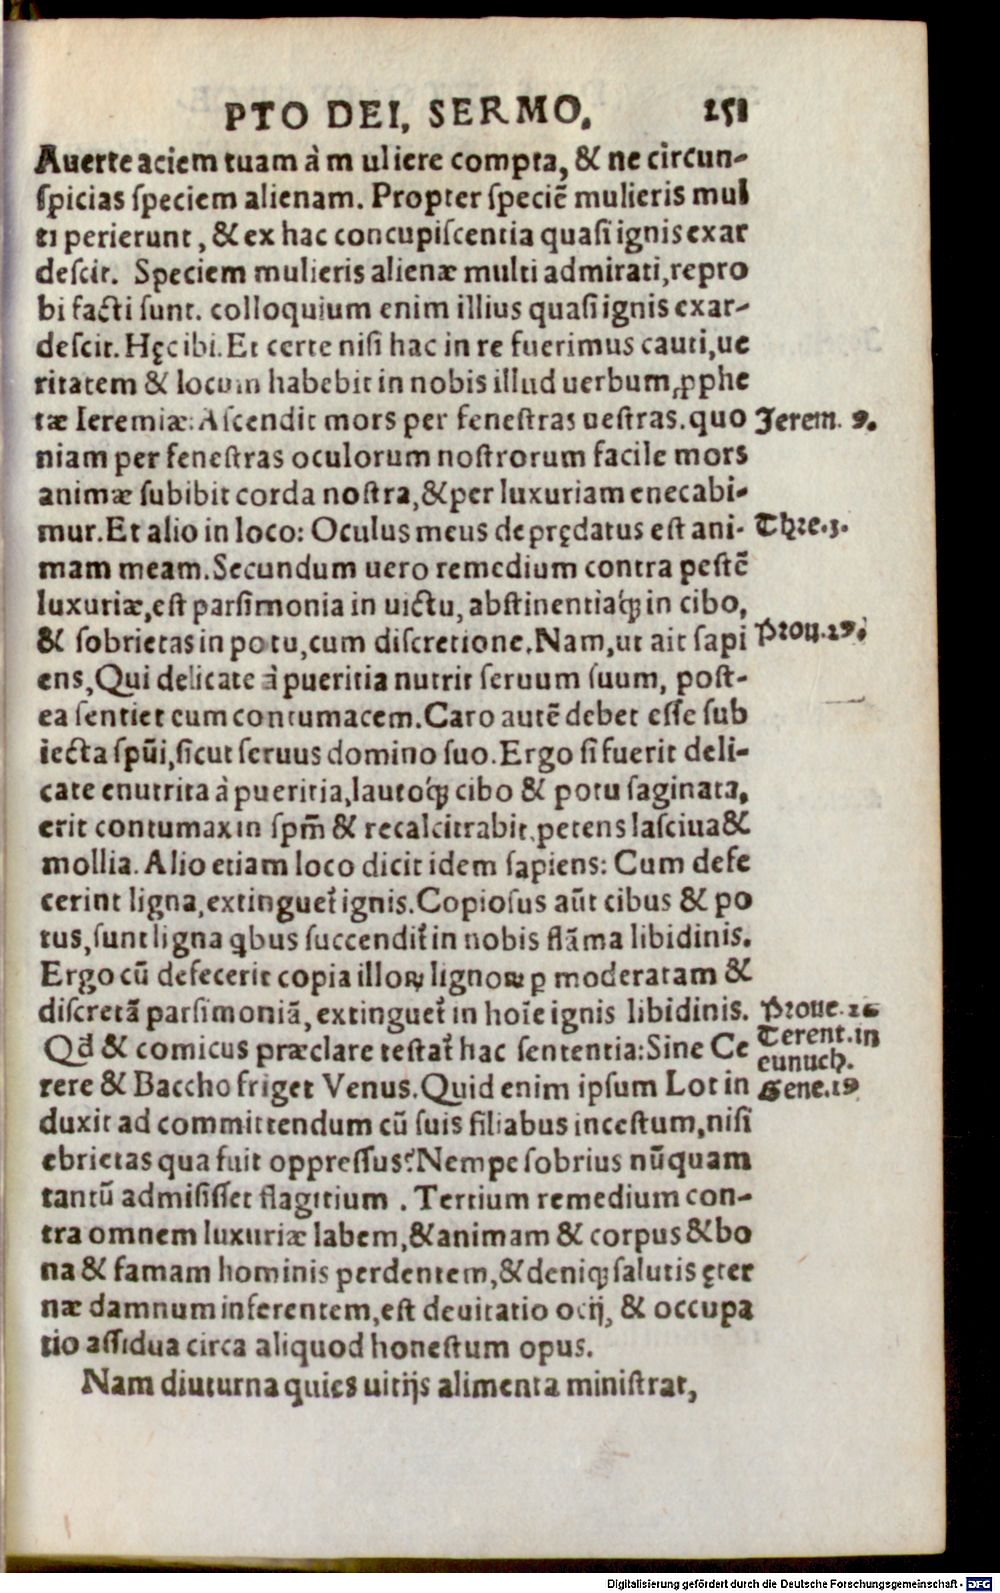 PTO DEI, SERMO. 251
Auerte aciem tuam à m uliere compta, & ne circun-
spicias speciem alienam. Propter speciē mulieris mul
ti perierunt, & ex hac concupiscentia quasi ignis exar
descit. Speciem mulieris alienæ multi admirati, repro
bi facti sunt. colloquium enim illius quasi ignis exar-
descit. Hęc ibi. Et certe nisi hac in re fuerimus cauti, ue
ritatem & locum habebit in nobis illud uerbum ꝓphe
tæ Ieremiæ: Ascendit mors per fenestras uestras. quo
Jerem. 9.
niam per fenestras oculorum nostrorum facile mors
animæ subibit corda nostra, & per luxuriam enecabi-
mur. Et alio in loco: Oculus meus deprędatus est ani-
Thre. 3.
mam meam. Secundum uero remedium contra pestē
luxuriæ, est parsimonia in uictu, abstinentiaq́; in cibo,
& sobrietas in potu, cum discretione. Nam, ut ait sapi
Prou. 29.
ens, Qui delicate à pueritia nutrit seruum suum, post-
ea sentiet eum contumacem. Caro autē debet esse sub
iecta spūi, sicut seruus domino suo. Ergo si fuerit deli-
cate enutrita à pueritia, lautoq́; cibo & potu saginata,
erit contumax in spm̄ & recalcitrabit, petens lasciua &
mollia. Alio etiam loco dicit idem sapiens: Cum defe
cerint ligna, extinguet᷑ ignis. Copiosus aūt cibus & po
tus, sunt ligna ꝗbus succendit᷑ in nobis flāma libidinis.
Ergo cū defecerit copia illoꝝ lignoꝝ ꝑ moderatam &
discretā parsimoniā, extinguet᷑ in hoīe ignis libidinis.
Proue. 26
Qd̄ & comicus præclare testat᷑ hac sententia: Sine Ce
Terent. in
eunuch.
rere & Baccho friget Venus. Quid enim ipsum Lot in
Gene. 19
duxit ad committendum cū suis filiabus incestum, nisi
ebrietas qua fuit oppressus? Nempe sobrius nūquam
tantū admisisset flagitium. Tertium remedium con-
tra omnem luxuriæ labem, & animam & corpus & bo
na & famam hominis perdentem, & deniq; salutis ęter
næ damnum inferentem, est deuitatio ocij, & occupa
tio assidua circa aliquod honestum opus.
Nam diuturna quies uitijs alimenta ministrat,
Digitalisierung gefördert durch die Deutsche Forschungsgemeinschaft - DFG